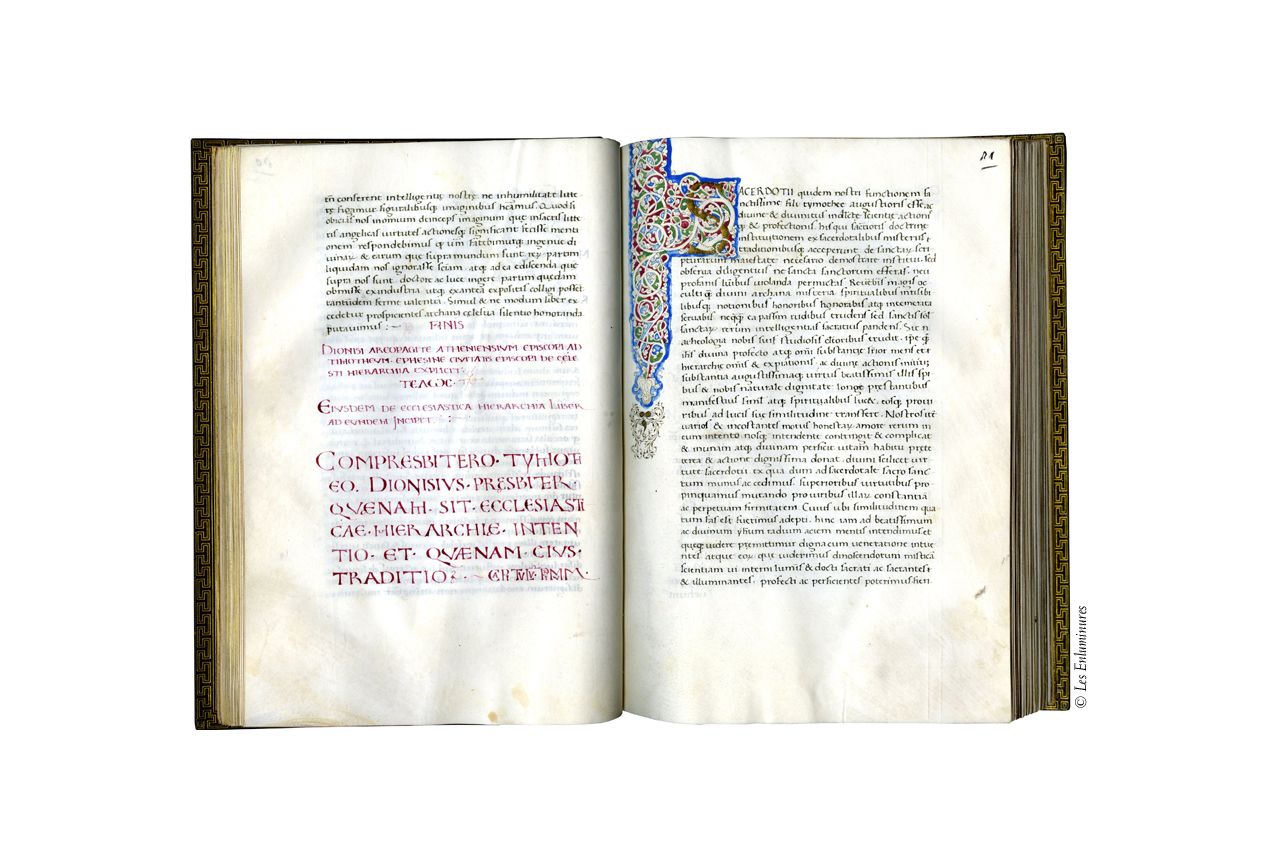 tñ conferent intelligentiẹ nostrẹ ne inhumilitate lutte
figuralibusq; imaginibus heamus. Quod si
obicias nos inomum deinceps imaginum que insacris litte
ris angelicas virtutes actionesq; significant fecisse menti
onem respondebimus
& earum que supra mundum sunt
liquidam nos ignorasse sciam atq; ad ea ediscenda que
supra nos sunt doctore ac luce partum quedam
obmisse exindustria utq; exantea expositis colligi posset
tantidem ferme valentia. Simul & ne modum liber ex
cedetur prospicientes archana celestia silentio honoranda
putavimus : ~
FINIS
DIONISI AREOPAGITE ATHENIENSIVM EPISCOPI AD
TIMOTHEVM EPHESINE CIVITATIS EPISCOPI DE CELE
STI HIERARCHIA EXPLICIT.
ΤΕΛωC
EIVSDEM DE ECCLESIASTICA HIERARCHIA LIBER
AD EVNDEM INCIPIT . : ~
COMPRESBITERO · TYMOT
EO. DIONISIVS · PRESBITER ·
QVENAM · SIT · ECCLESIASTI
CAE · HIERARCHIE · INTEN
TIO · ET · QVÆNAM · EIVS ·
TRADITIO
51
ACERDOTII quidem nostri functionem sa
nctissime fili tymothee augustioris esse ac
divine & divinitus indicte scientie actionis
q; & profectionis his qui sacrotis doctrine
institutionem ex sacerdotalibus misteriis
traditionibusq; acceperunt de sanctar scri
pturarum maiestate necesario demostrare institui. Sed
observa diligentius ne sancta sanctorum efferas. neu
profanis luibus violanda permictas. Revebis magis oc
cultiq; divini archana misteria spiritalibus invisibi
libusq; notionibus honoribus honorabis atq; intemerata
servabis. neq; ea passim rudibus trudens sed sanctis sol
sanctar rerum intelligentiis sacratius pandens. Sic n
acheologia nobis suis studiosis ctoribus trudit. ipse q;
ihs divina profecto atq; omi substantie prior mens et
hierarchie omis & expiationis ac divine actionis initiu;
substantia augustissimaq; virtus beatissimis illis spi
bus & nobis naturale dignitate longe prestantibus
manifestius simul atq; spiritualibus luce. eosq; pro vi
ribus ad lucis sue similitudine transfere. Nostros ut
varios & incostantes motus honestar amore rerum in
eum intento nosq; intendente contingit & complicat
& in unam atq; divinam perficit vitam habitu prete
terea & actione dignissima donat. divini scilicet vir
tute sacerdotii ex qua dum ad sacerdotale sacro sanc
tum munus accedimus. superioribus virtutibus pro
pinquamus mutando pro viribus illar constantia
ac perpetuam firmitatem. Cuius ubi similitudinem qua
tum fas est fuerimus adepti. hinc iam ad beatissimum
ac divinum yhsum radium aciem mentis intendimus et
queq; videre premittimur digna cum veneratione intue
ntes atque eor que viderimus dinoscendorum mistica
scientiam vi interni luminis & docti sacrati ac sacrantes
& illuminantes. profecti ac perficientes poterimus fieri
© Les Enluminures